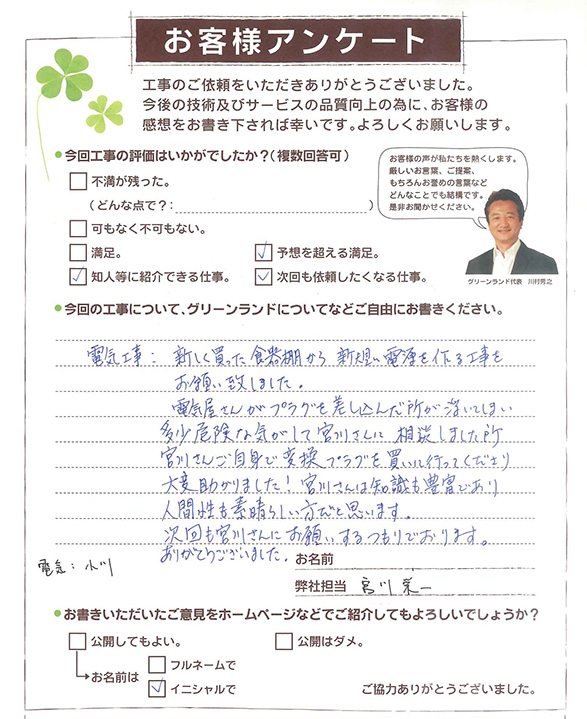 お客様アンケート
工事のご依頼をいただきありがとうございました。
今後の技術及びサービスの品質向上の為に、お客様の
感想をお書き下されば幸いです。よろしくお願いします。
●今回工事の評価はいかがでしたか？（複数回答可）
不満が残った。
（どんな点で？：）
可もなく不可もない。
満足。
予想を超える満足。
知人等に紹介できる仕事。
次回も依頼したくなる仕事。
お客様の声が私たちを熱くします。
厳しいお言葉、ご提案、
もちろんお誉めの言葉など
どんなことでも結構です。
是非お聞かせください。
グリーンランド代表 川村芳之
●今回の工事について、グリーンランドについてなどご自由にお書きください。
電気工事： 新しく買った食器棚から 新規に電源を作る工事を
お願い致しました。
電気屋さんがプラグを差し込んだ所が浮いてしまい
多少危険な気がして宮川さんに 相談しました所
宮川さんご自身で変換プラグを買いに行ってくださり
大変助かりました！宮川さんは知識も豊富であり
人間性も素晴らしい方だと思います。
次回も宮川さんにお願いするつもりでおります。
ありがとうございました。
お名前
電気：小川
弊社担当 宮川栄一
●お書きいただいたご意見をホームページなどでご紹介してもよろしいでしょうか？
公開してもよい。
公開はダメ。
お名前は
フルネームで
イニシャルで
ご協力ありがとうございました。